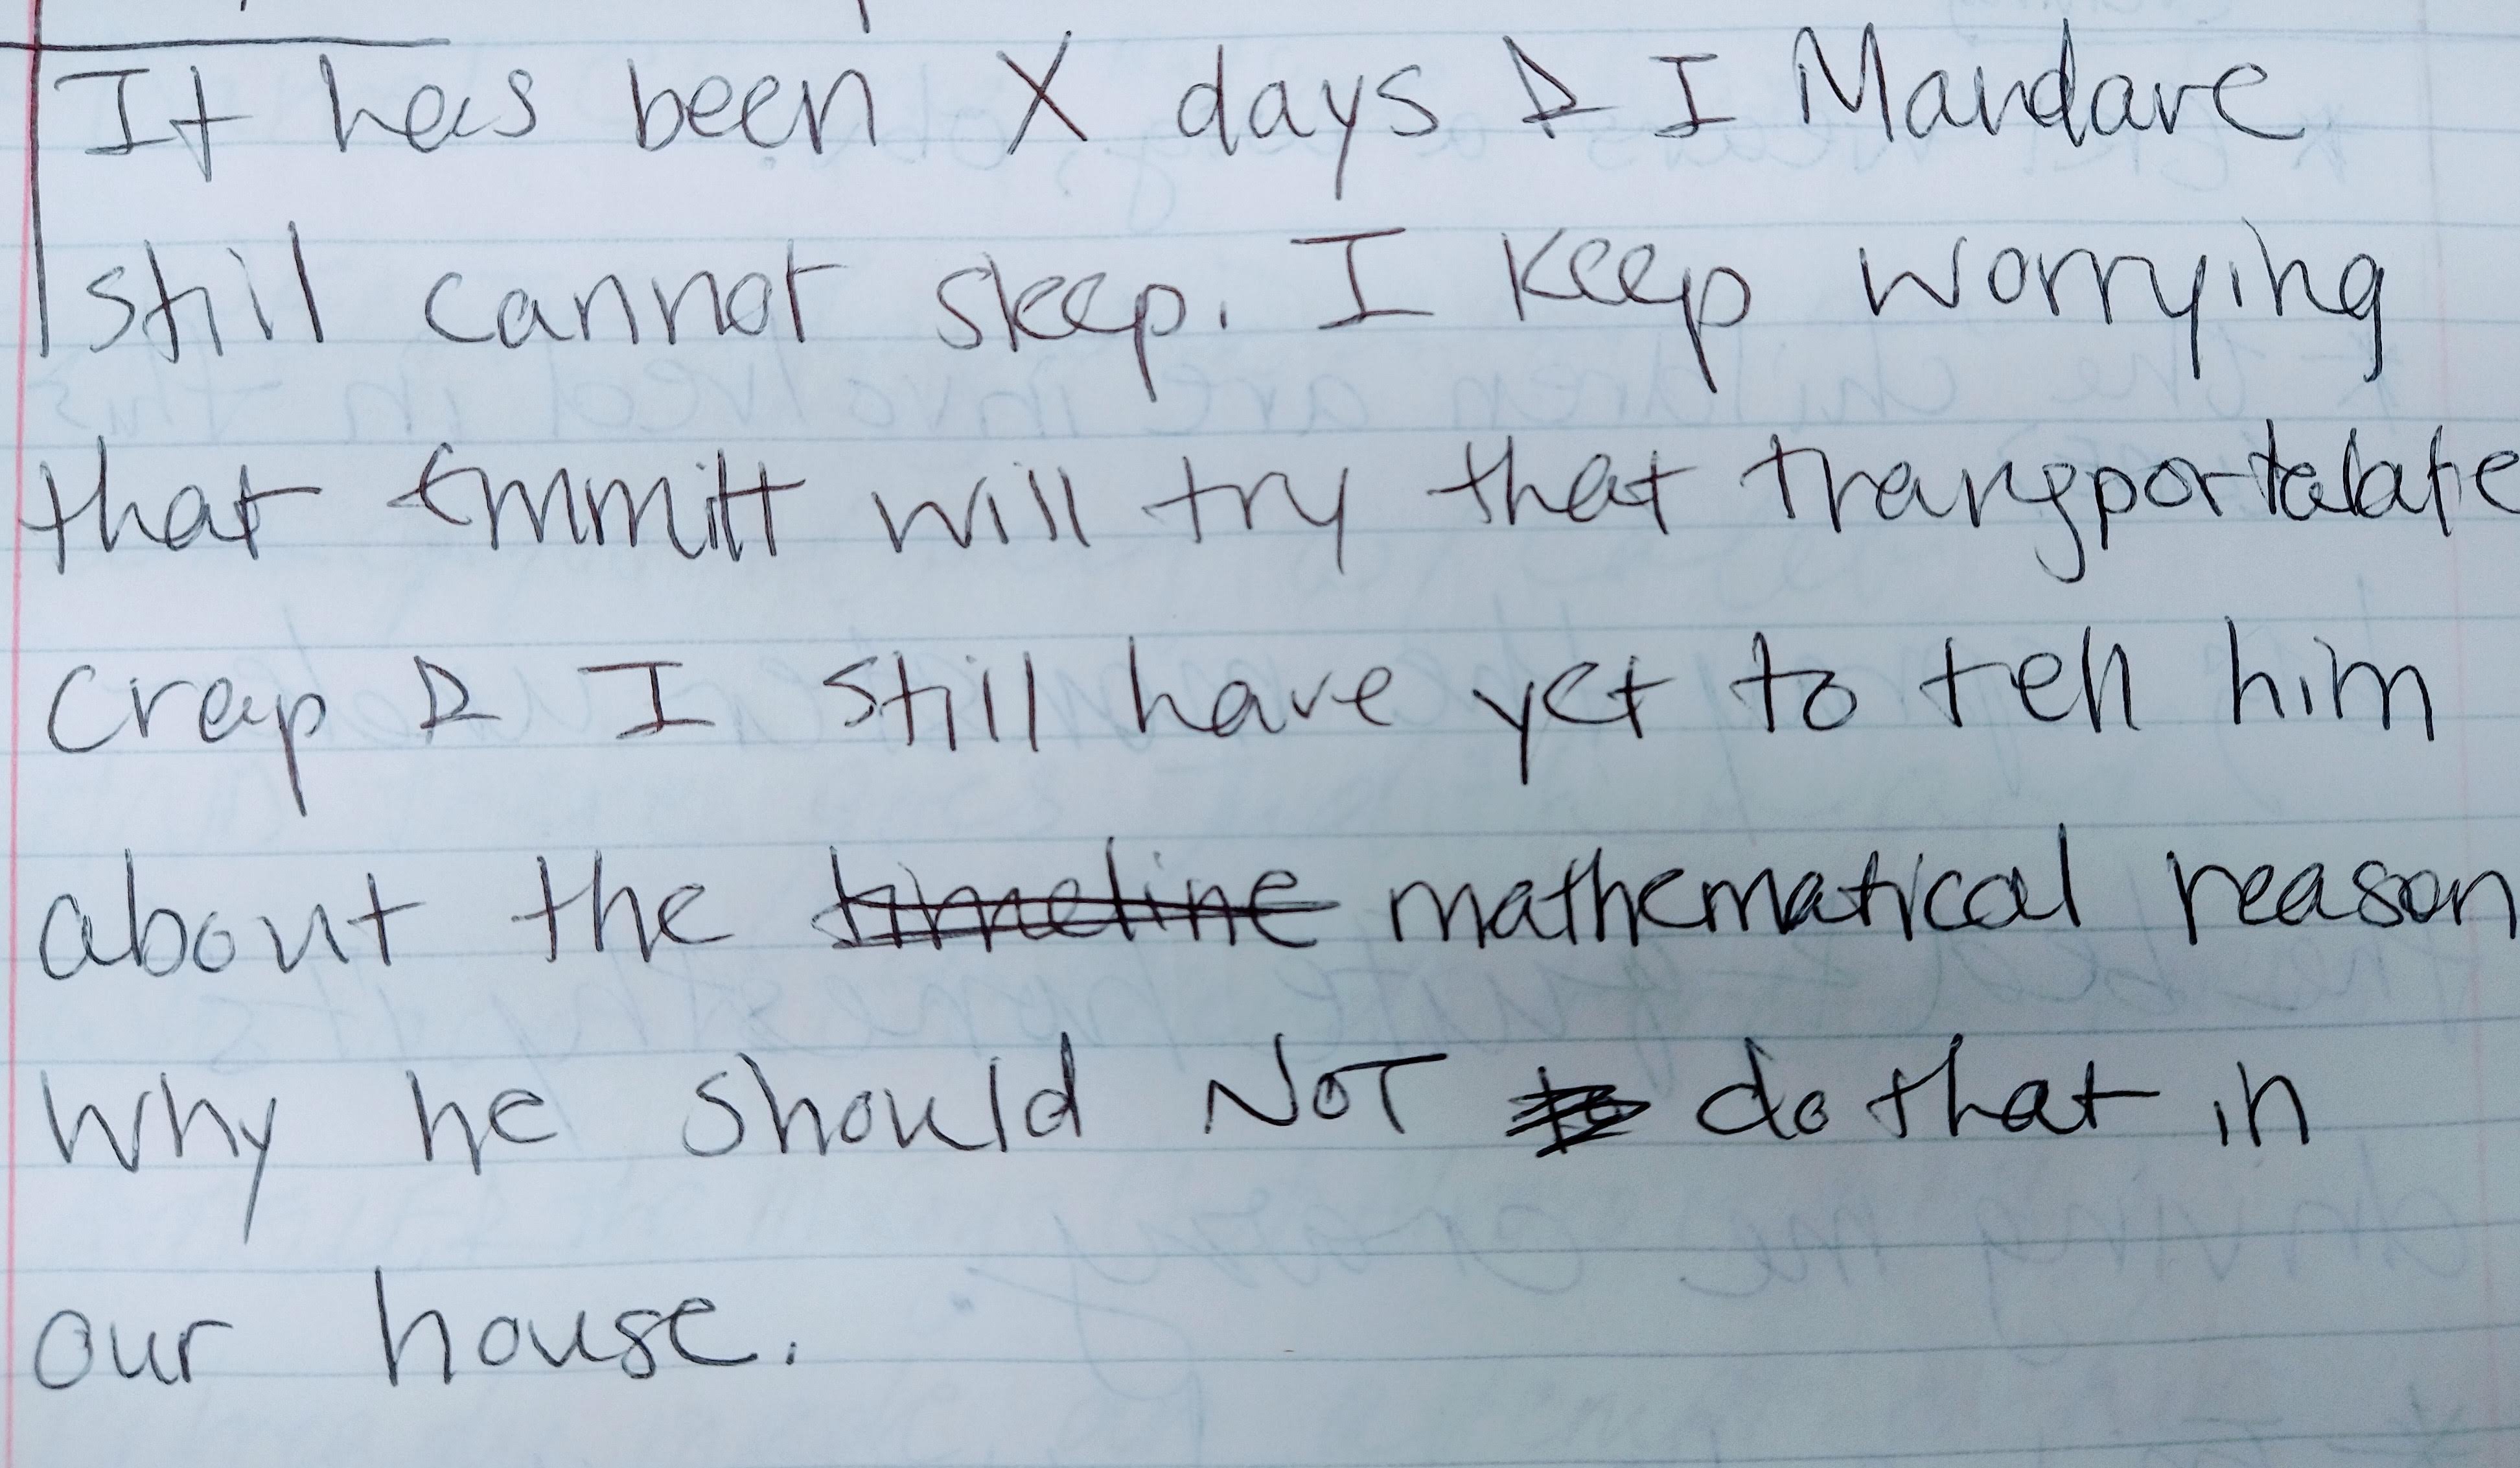 It has been X days & I Mandare
still cannot sleep. I keep worrying
that Emmitt will try that transportalate
crap & I still have yet to tell him
about the timeline mathematical reason
why he should NOT to do that in
our house.